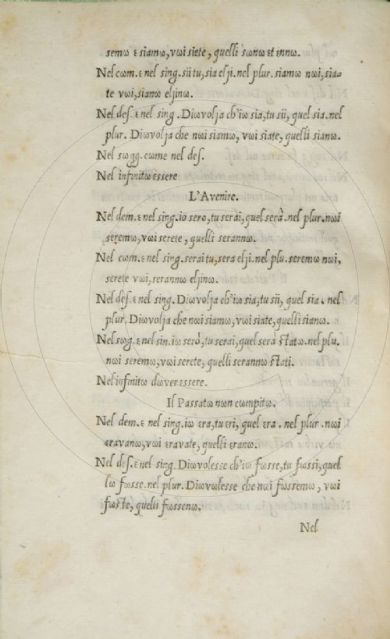 semω ε siamω, vωi siete, quelli sωnω et ennω.
Nel cωm. ε nel sing. sii tu, sia elji. nel plur. siamω nωi, sia-
te vωi, sianω eljinω.
Nel des. ε nel sing. Diωvωlja ch'iω sia, tu sii, quel sia. nel
plur. Diωvωlja che nωi siamω, vωi siate, quelli sianω.
Nel sωgg. cωme nel des.
Nel infinitω εssere
L'Avenire.
Nel dem. ε nel sing. iω serò, tu serai, quel serà. nel plur. nωi
seremω, vωi serete, quelli serannω.
Nel cωm. ε nel sing. serai tu, sera elji. nel plu. seremω nωi,
serete vωi, serannω eljinω.
Nel des. ε nel sing. Diωvωlja ch'iω sia, tu sii, quel sia. nel
plur. Diωvωlja che nωi siamω, vωi siate, quelli sianω.
Nel sωg. ε nel sin. iω serò, tu serai, quel serà statω. nel plu.
nωi seremω, vωi serete, quelli serannω stati.
Nel infinitω dωver essere.
Il Passatω nωn cωmpitω.
Nel dem. ε nel sing. iω εra, tu εri, quel εra. nel plur. nωi
εravamω, vωi εravate, quelli εranω.
Nel des. ε nel sing. Diωvωlesse ch'iω fωsse, tu fωssi, quel
lω fωsse. nel plur. Diωvωlesse che nωi fωssemω, vωi
fωste, quelli fωssenω.
Nel